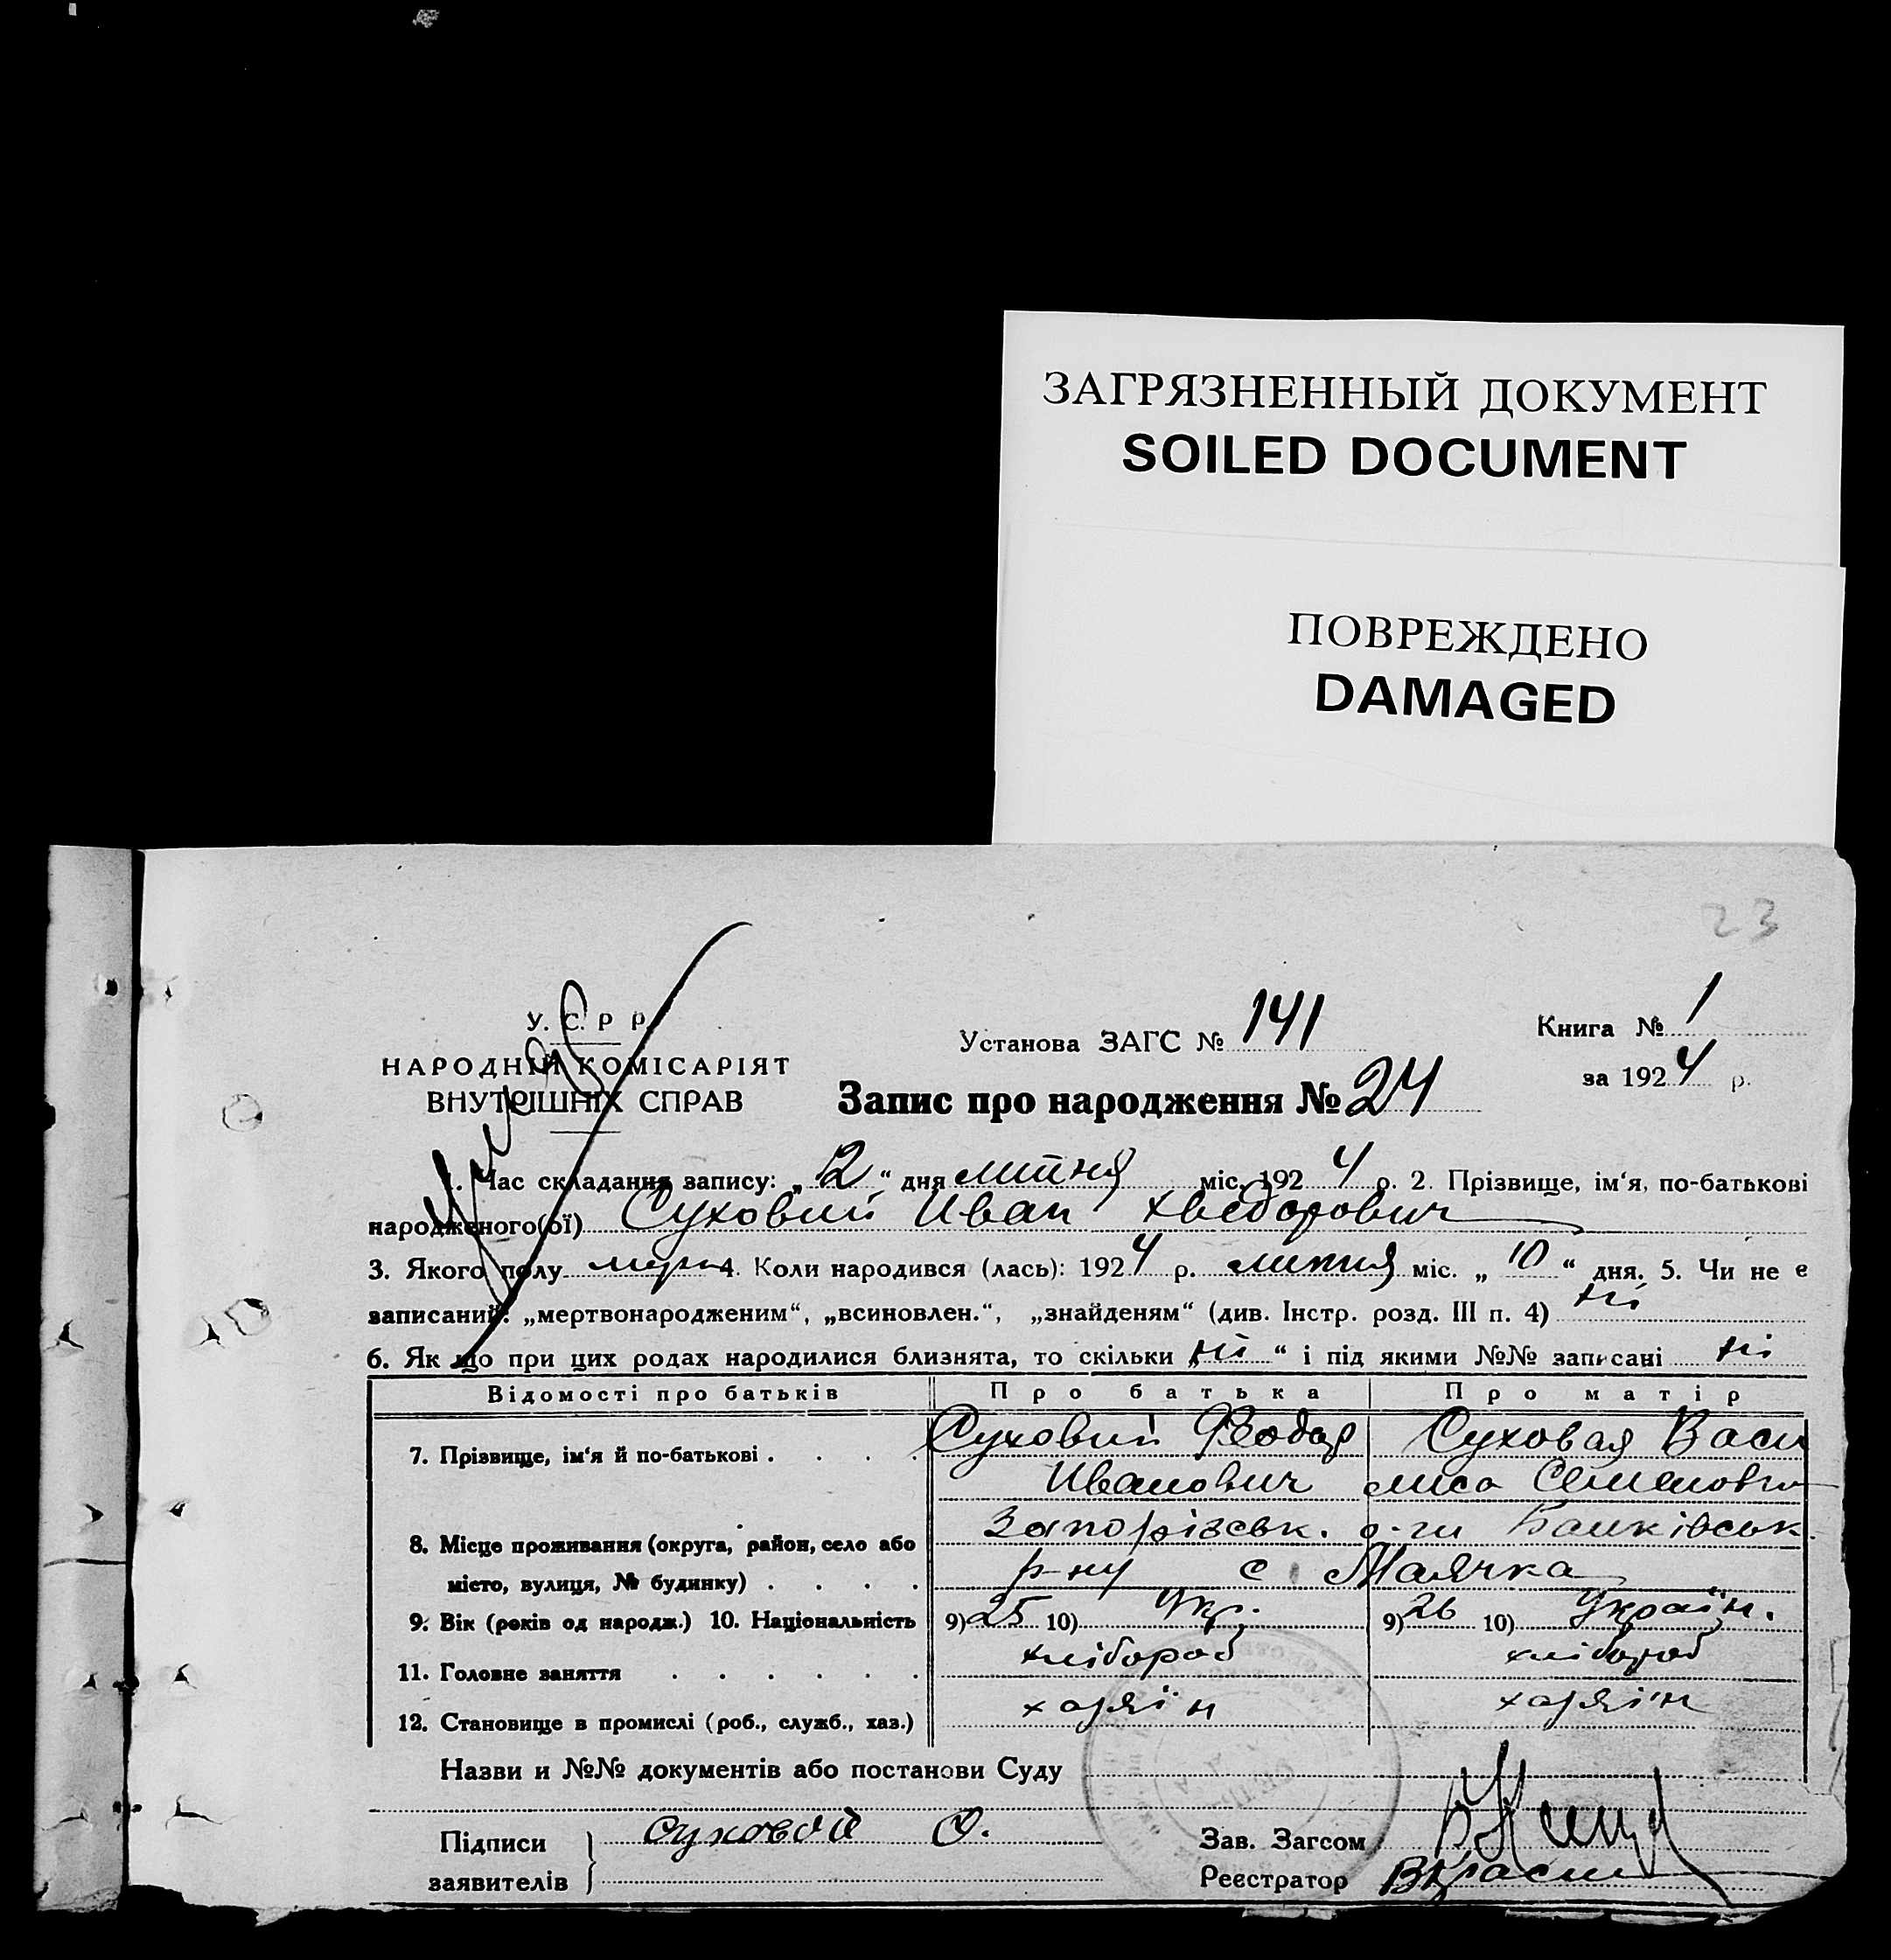 ЗАГРЯЗНЕННЫЙ ДОКУМЕНТ
SOILED DOCUMENT
ПОВРЕЖДЕНО
DAMAGED
23
У. С. Р Р.
НАРОДНІЙ КОМІСАРІЯТ
ВНУТРІШНІХ СПРАВ
Установа ЗАГС № 141
Книга № 1
за 1924 р.
Запис про народження № 24
1. Час складання запису: „12“ дня липня міс. 1924 р. 2. Прізвище, ім‘я, по-батькові
народженого(ої) Суховий Иван Хведорович
3. Якого полу муж 4. Коли народився (лась): 1924 р. липня міс. „10“ дня. 5. Чи не є
записаний: „мертвонародженим“, „всиновлен.“, „знайденям“ (див. Інстр. розд. III п. 4) ні
6. Як що при цих родах народилися близнята, то скільки „ні“ і під якими №№ записані ні
Відомості про батьків Про батька Про матір
7. Прізвище, ім‘я й по-батькові . . . . Суховий Феодор Суховая Васи
Иванович лиса Семеновна
8. Місце проживання (округа, район, село або Запорізськ. о-ги
місто, вулиця, № будинку) . . . . р-ну с Маячка
9. Вік (років од народж.) 10. Національність 9) 25 10) Укр. 9) 26 10) Україн.
11. Головне заняття . . . . . . хлібороб хлібороб
12. Становище в промислі (роб., служб., хаз.) хазяїн хазяїн
Назви и №№ документів або постанови Суду
Підписи
заявителів
Суховой Ф.
Зав. Загсом
Реєстратор